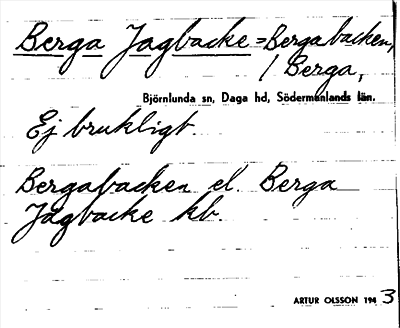 Berga Jagbacke = Bergabacken,
/ Berga,
Björnlunda sn, Daga hd, Södermanlands län.
Ej brukligt
Bergabacken el. Berga
Jagbacke kb.
ARTUR OLSSON 1943